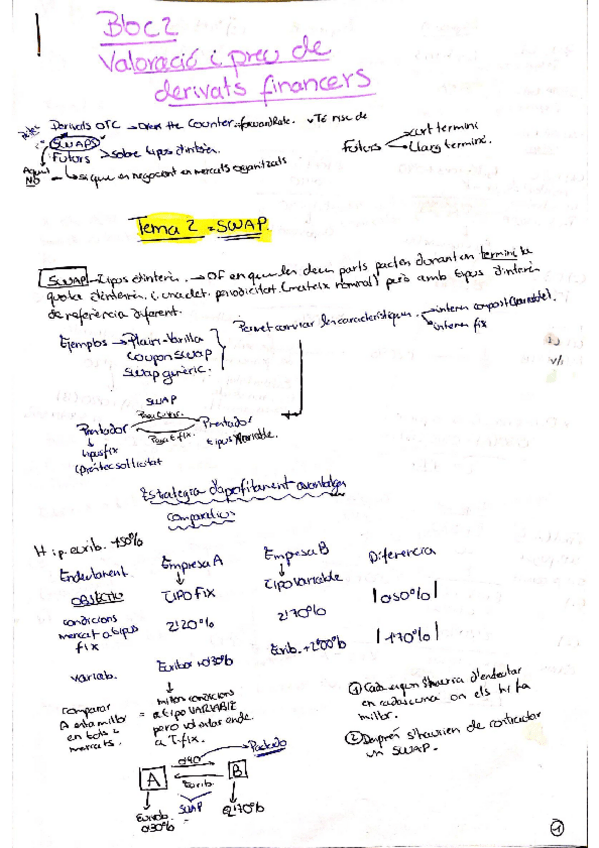 Bloc 2
Valoració i preu de
derivats financers
Derivats OTC → Over the Counter. forward Rate. Té risc de
SWAPS
Futurs sobre tipus d'interès.
Futurs curt termini
llarg termini.
Aquí
NO
sí que en negocien en mercats organitzats
Tema 2 = SWAP.
SWAP - Tipus d'interès. → OF en que les dues parts pacten durant un termini la
quota d'interès i una det. periodicitat (mateix nominal) però amb tipus d'interès
de referència diferent.
Ejemplos → Plain-Vanilla
Coupon swap
Swap genèric.
Permet canviar les característiques. interès compost (variable).
interès fix
SWAP
Prestador Prestador
Paga t. fix.
tipus fix tipus Variable.
(préstec sol·licitat
Estrategia d'aprofitament avantatges
comparatius
Hip. eurib. 150%
Endeutament. Empresa A Empresa B Diferencia
OBJECTIU TIPO FIX TIPO variable
condicions
mercat a tipus
fix
2'20% 2'70% |0'50%|
variab. Euribor + 0'30% Eurib. + 2'00% |1'70%|
comparar
A està millor
en tots 2
mercats.
= millors condicions
a tipo VARIABLE
pero vol endeudar
a T. fix.
① Cada seguin s'hauria d'endeutar
en cadascuna on els hi fa
millor.
② Després s'haurien de contractar
un SWAP.
Pactado
0'40
A B
Eurib.
SWAP
Eurib. 2'70%
0'30%
1